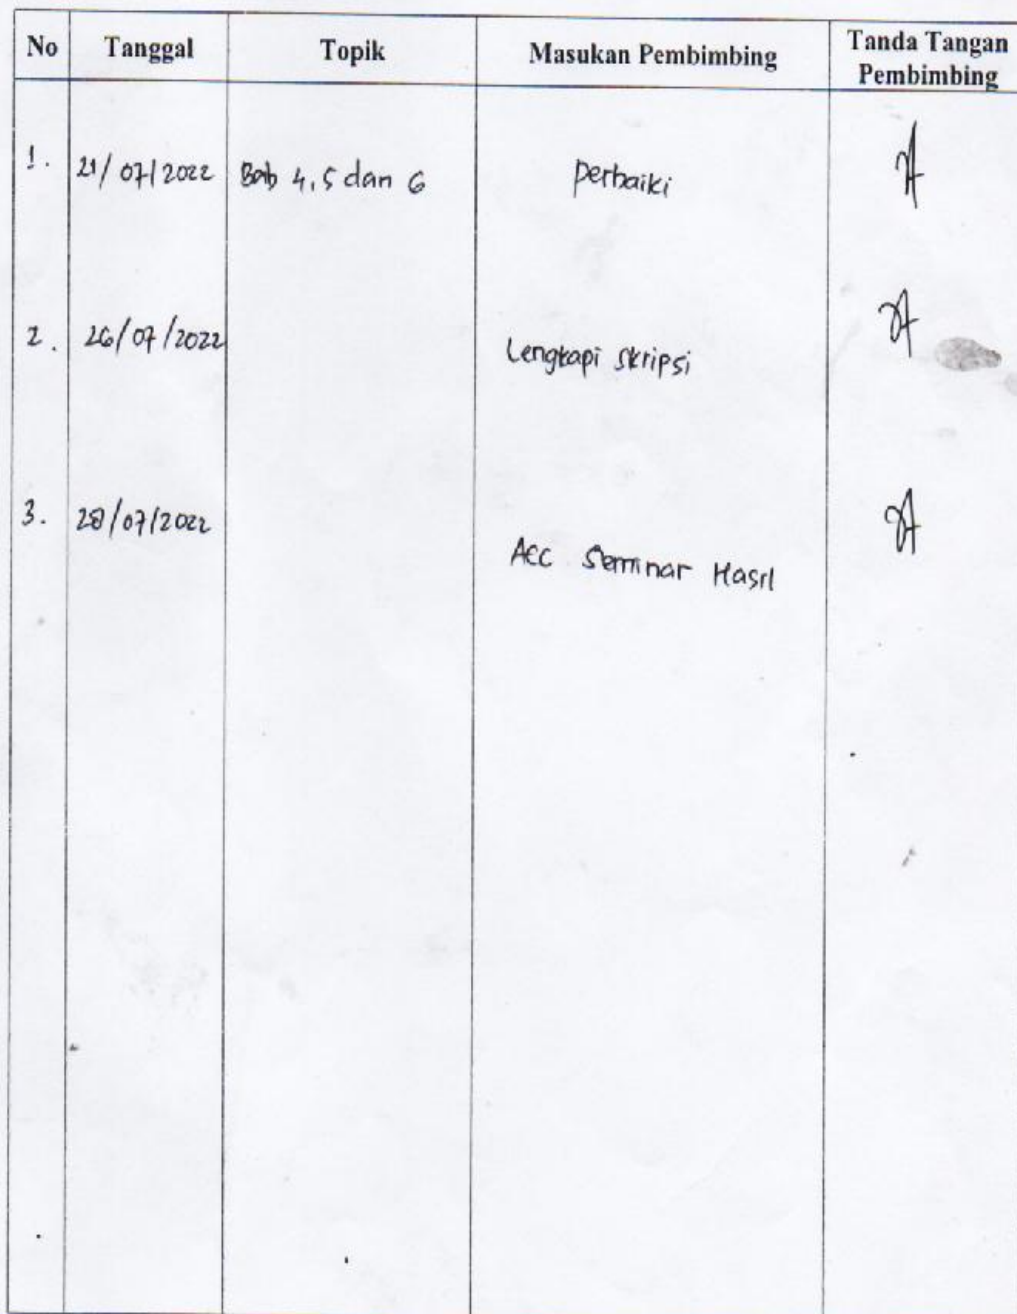 No Tanggal Topik Masukan Pembimbing Tanda Tangan Pembimbing
1. 21/07/2022 Bab 4,5 dan 6 Perbaiki
2. 26/07/2022 Lengkapi skripsi
3. 28/07/2022 Acc Seminar Hasil